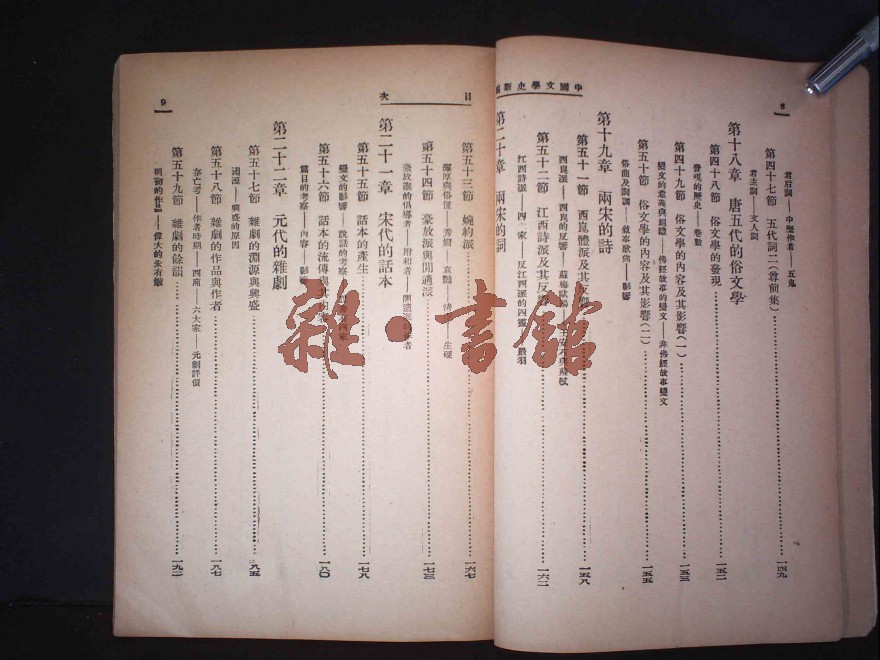 8
中國文學史新
君后詞——中堅作者——五鬼
第四十七節 五代詞二(尊前集)……一四九
君主詞——文人詞
第十八章 唐五代的俗文學
第四十八節 俗文學的發現……一五二
發現的歷史——卷數
第四十九節 俗文學的內容及其影響(一)……一五三
變文的意義與組織——佛經故事的變文——非佛經故事變文
第五十節 俗文學的內容及其影響(二)……一五五
俗曲及詞調——敍事歌曲——影響
第十九章 兩宋的詩
第五十一節 西崑體派及其反響……一五八
西崑派——西崑的反響——蘇梅歐
第五十二節 江西詩派及其反……一六二
江西詩派——四家——反江西派的四靈——嚴羽
第二十章 兩宋的詞
目 次
第五十三節 婉約派……一六七
第五十四節 豪放派與閒適派……一七三
豪放派的倡導者——附和者——閒適
第二十一章 宋代的話本
第五十五節 話本的產生……一七八
變文的影響——說話的考察
第五十六節 話本的流傳與其……一八〇
篇目的考察——內容——影
第二十二章 元代的雜劇
第五十七節 雜劇的淵源與興盛……一八五
淵源——興盛的原因
第五十八節 雜劇的作品與作者……一八七
存亡考——作者時期——西廂——六大家——元劇評價
第五十九節 雜劇的餘韻……一九二
明初的作品——偉大的朱有燉
9
雜·書館